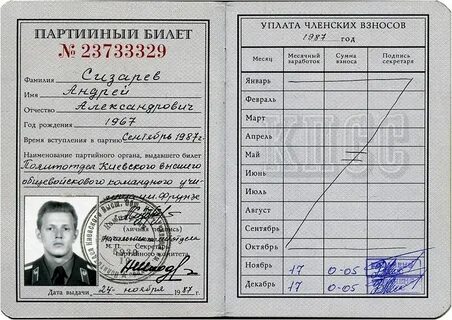 ПАРТИЙНЫЙ БИЛЕТ
№ 23733329
Фамилия Сизарев
Имя Андрей
Отчество Александрович
Год рождения 1967
Время вступления в партию Сентябрь 1987 г.
Наименование партийного органа, выдавшего билет
Политотдел Киевского высшего
общевойскового командного учи-
Фрунзе
(личная подпись)
М. П. Секретарь
партийного комитета
Дата выдачи 24 ноября 1987 г.
УПЛАТА ЧЛЕНСКИХ ВЗНОСОВ
1987 год
Месяц Месячный заработок Сумма взноса Подпись секретаря
Январь
Февраль
Март
Апрель
Май
Июнь
Июль
Август
Сентябрь
Октябрь
Ноябрь 17 0-05
Декабрь 17 0-05
КПСС